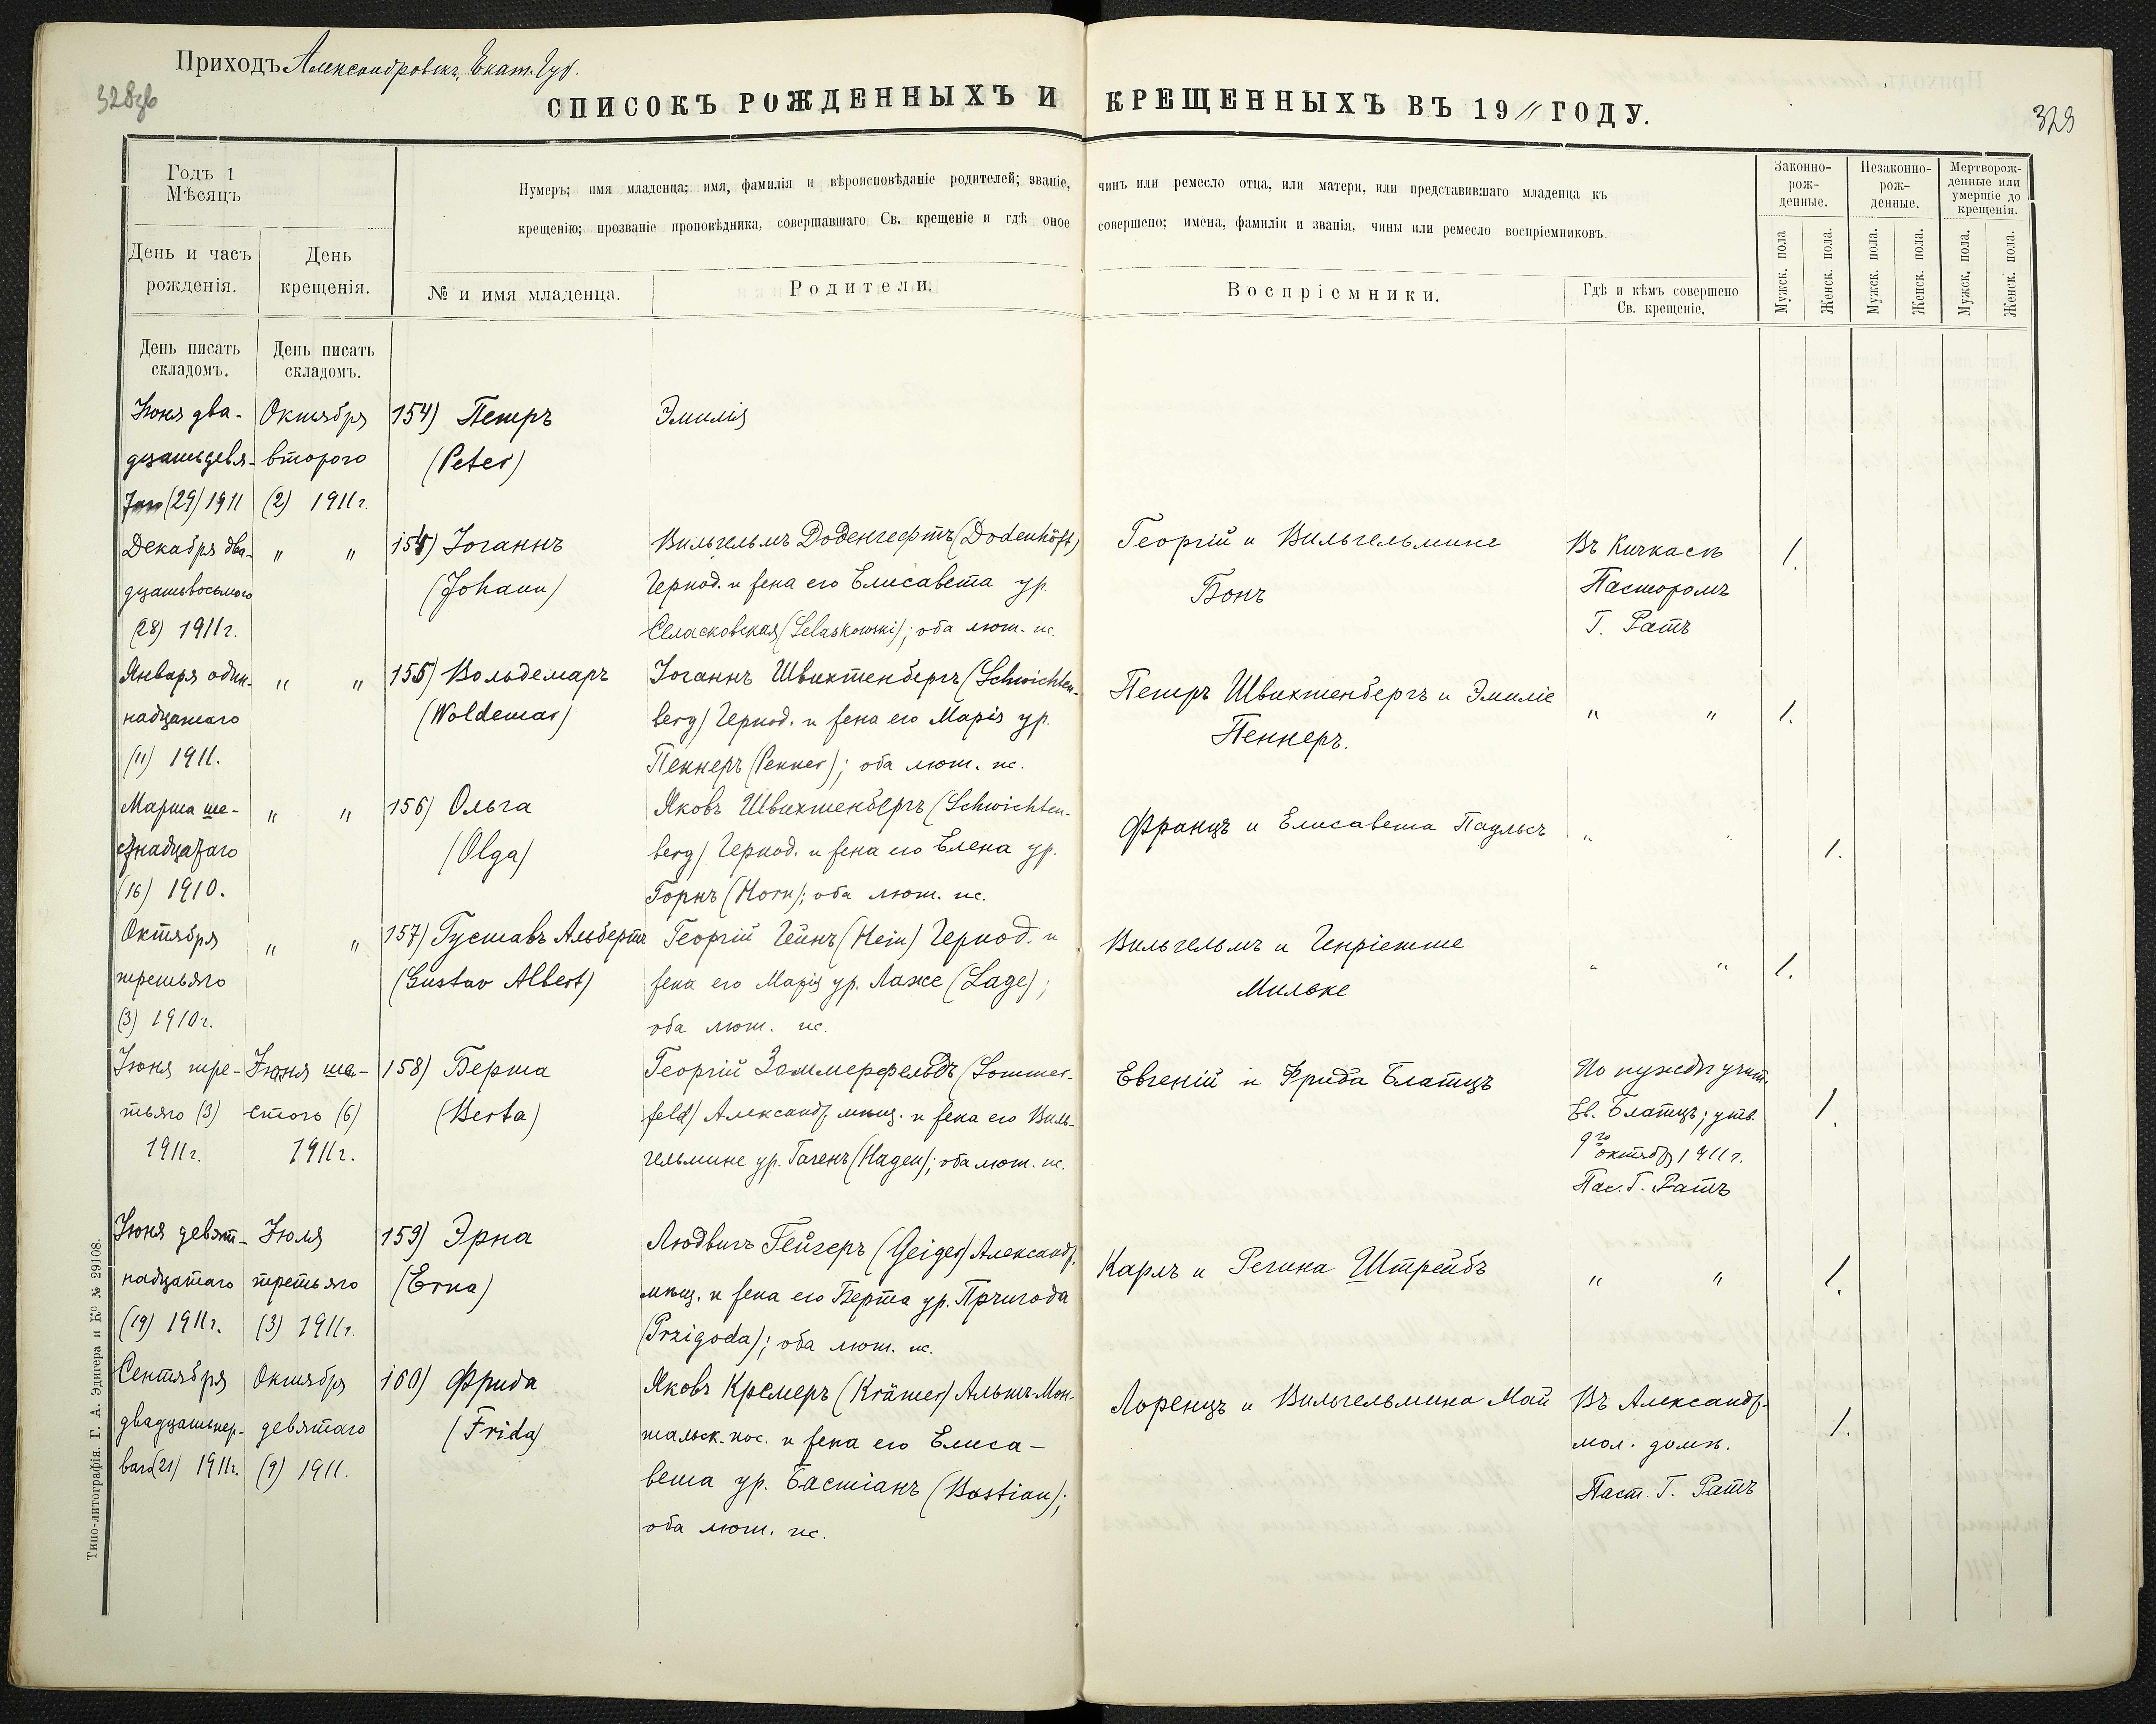 Приходъ Александровскъ, Екат. Губ.
328об
329
СПИСОКЪ РОЖДЕННЫХЪ И КРЕЩЕННЫХЪ ВЪ 1911 ГОДУ.
Годъ 1
Мѣсяцъ
День и часъ
рожденія.
День
крещенія.
Нумеръ; имя младенца; имя, фамилія и вѣроисповѣданіе родителей; званіе, чинъ или ремесло отца, или матери, или представившаго младенца къ
крещенію; прозваніе проповѣдника, совершавшаго Св. крещеніе и гдѣ оное совершено; имена, фамиліи и званія, чины или ремесло воспріемниковъ.
№ и имя младенца.
Родители.
Воспріемники.
Гдѣ и кѣмъ совершено
Св. крещеніе.
Законно-
рож-
денные.
Незаконно-
рож-
денные.
Мертворож-
денные или
умершіе до
крещенія.
Мужск. пола
Женск. пола.
Мужск. пола.
Женск. пола.
Мужск. пола.
Женск. пола.
День писать
складомъ.
День писать
складомъ.
Іюня два-
дцатьдевя-
(29) 1911
Октября
второго
(2) 1911 г.
154) Петръ
(Peter)
Эмилія
Декабря два-
дцатьвосьмого
(28) 1911 г.
" "
155) Іоганнъ
(Johann)
Вильгельмъ Доденгефтъ (Dodenhöft)
и жена его Елисавета ур.
Селасковская (Selaskowski); оба лют. ис.
Георгій и Вильгельмине
Бонъ
Въ Кичкасѣ
Пасторомъ
Г. Ратъ
1.
Января один-
надцатаго
(11) 1911.
" "
155) Вольдемаръ
(Woldemar)
Іоганнъ Швихтенбергъ (Schwichten-
berg) и жена его Марія ур.
Пеннеръ (Penner); оба лют. ис.
Петръ Швихтенбергъ и Эмиліе
Пеннеръ.
" "
1.
Марта ше-
стнадцатаго
(16) 1910.
" "
156) Ольга
(Olga)
Яковъ Швихтенбергъ (Schwichten-
berg) и жена его Елена ур.
Горнъ (Horn); оба лют. ис.
Францъ и Елисавета Паульсъ
" "
1.
Октября
третьяго
(3) 1910 г.
" "
157) Густавъ Альбертъ
(Gustav Albert)
Георгій Гейнъ (Hein) и
жена его Марія ур. Лаже (Lage);
оба лют. ис.
Вильгельмъ и Генріетте
Мильке
" "
1.
Іюня тре-
тьяго (3)
1911 г.
Іюня ше-
стого (6)
1911 г.
158) Берта
(Berta)
Георгій Заммерфельдъ (Sommer-
feld) Александр. мѣщ. и жена его Виль-
гельмине ур. Гагенъ (Hagen); оба лют. ис.
Евгеній и Фрида Блатцъ
По нуждѣ учит.
Ев. Блатцъ; утв.
9го октября 1911 г.
Пас. Г. Ратъ
1.
Іюня девят-
надцатаго
(19) 1911 г.
Іюля
третьяго
(3) 1911 г.
159) Эрна
(Erna)
Людвигъ Гейгеръ (Geiger) Александр.
мѣщ. и жена его Берта ур. Пржигода
(Przigoda); оба лют. ис.
Карлъ и Регина Штрейбъ
" "
1.
Сентября
двадцатьпер-
ваго (21) 1911 г.
Октября
девятаго
(9) 1911.
160) Фрида
(Frida)
Яковъ Кремеръ (Krämer) Альтъ-Мон-
тальск. пос. и жена его Елиса-
вета ур. Бастіанъ (Bastian);
оба лют. ис.
Лоренцъ и Вильгельмина Май
Въ Александр.
мол. домѣ.
Паст. Г. Ратъ
1.
Типо-литографія. Г. А. Эдигера и Ко № 29108.